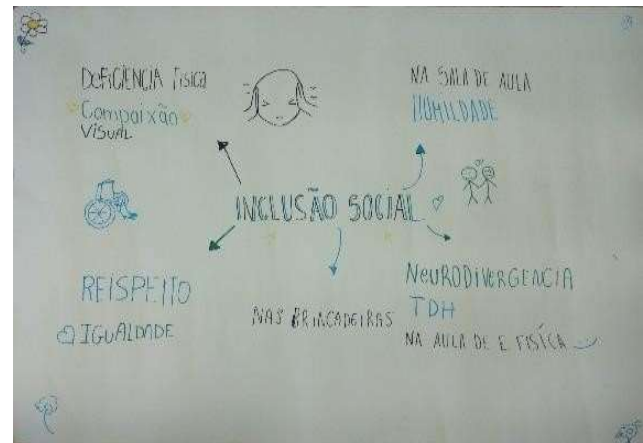 DEFICIÊNCIA FÍSICA
Compaixão
VISUAL
NA SALA DE AULA
HUMILDADE
INCLUSÃO SOCIAL
REISPEITO
IGUALDADE
NAS BRINCADEIRAS
NEURODIVERGENCIA
TDH
NA AULA DE E FISÍCA